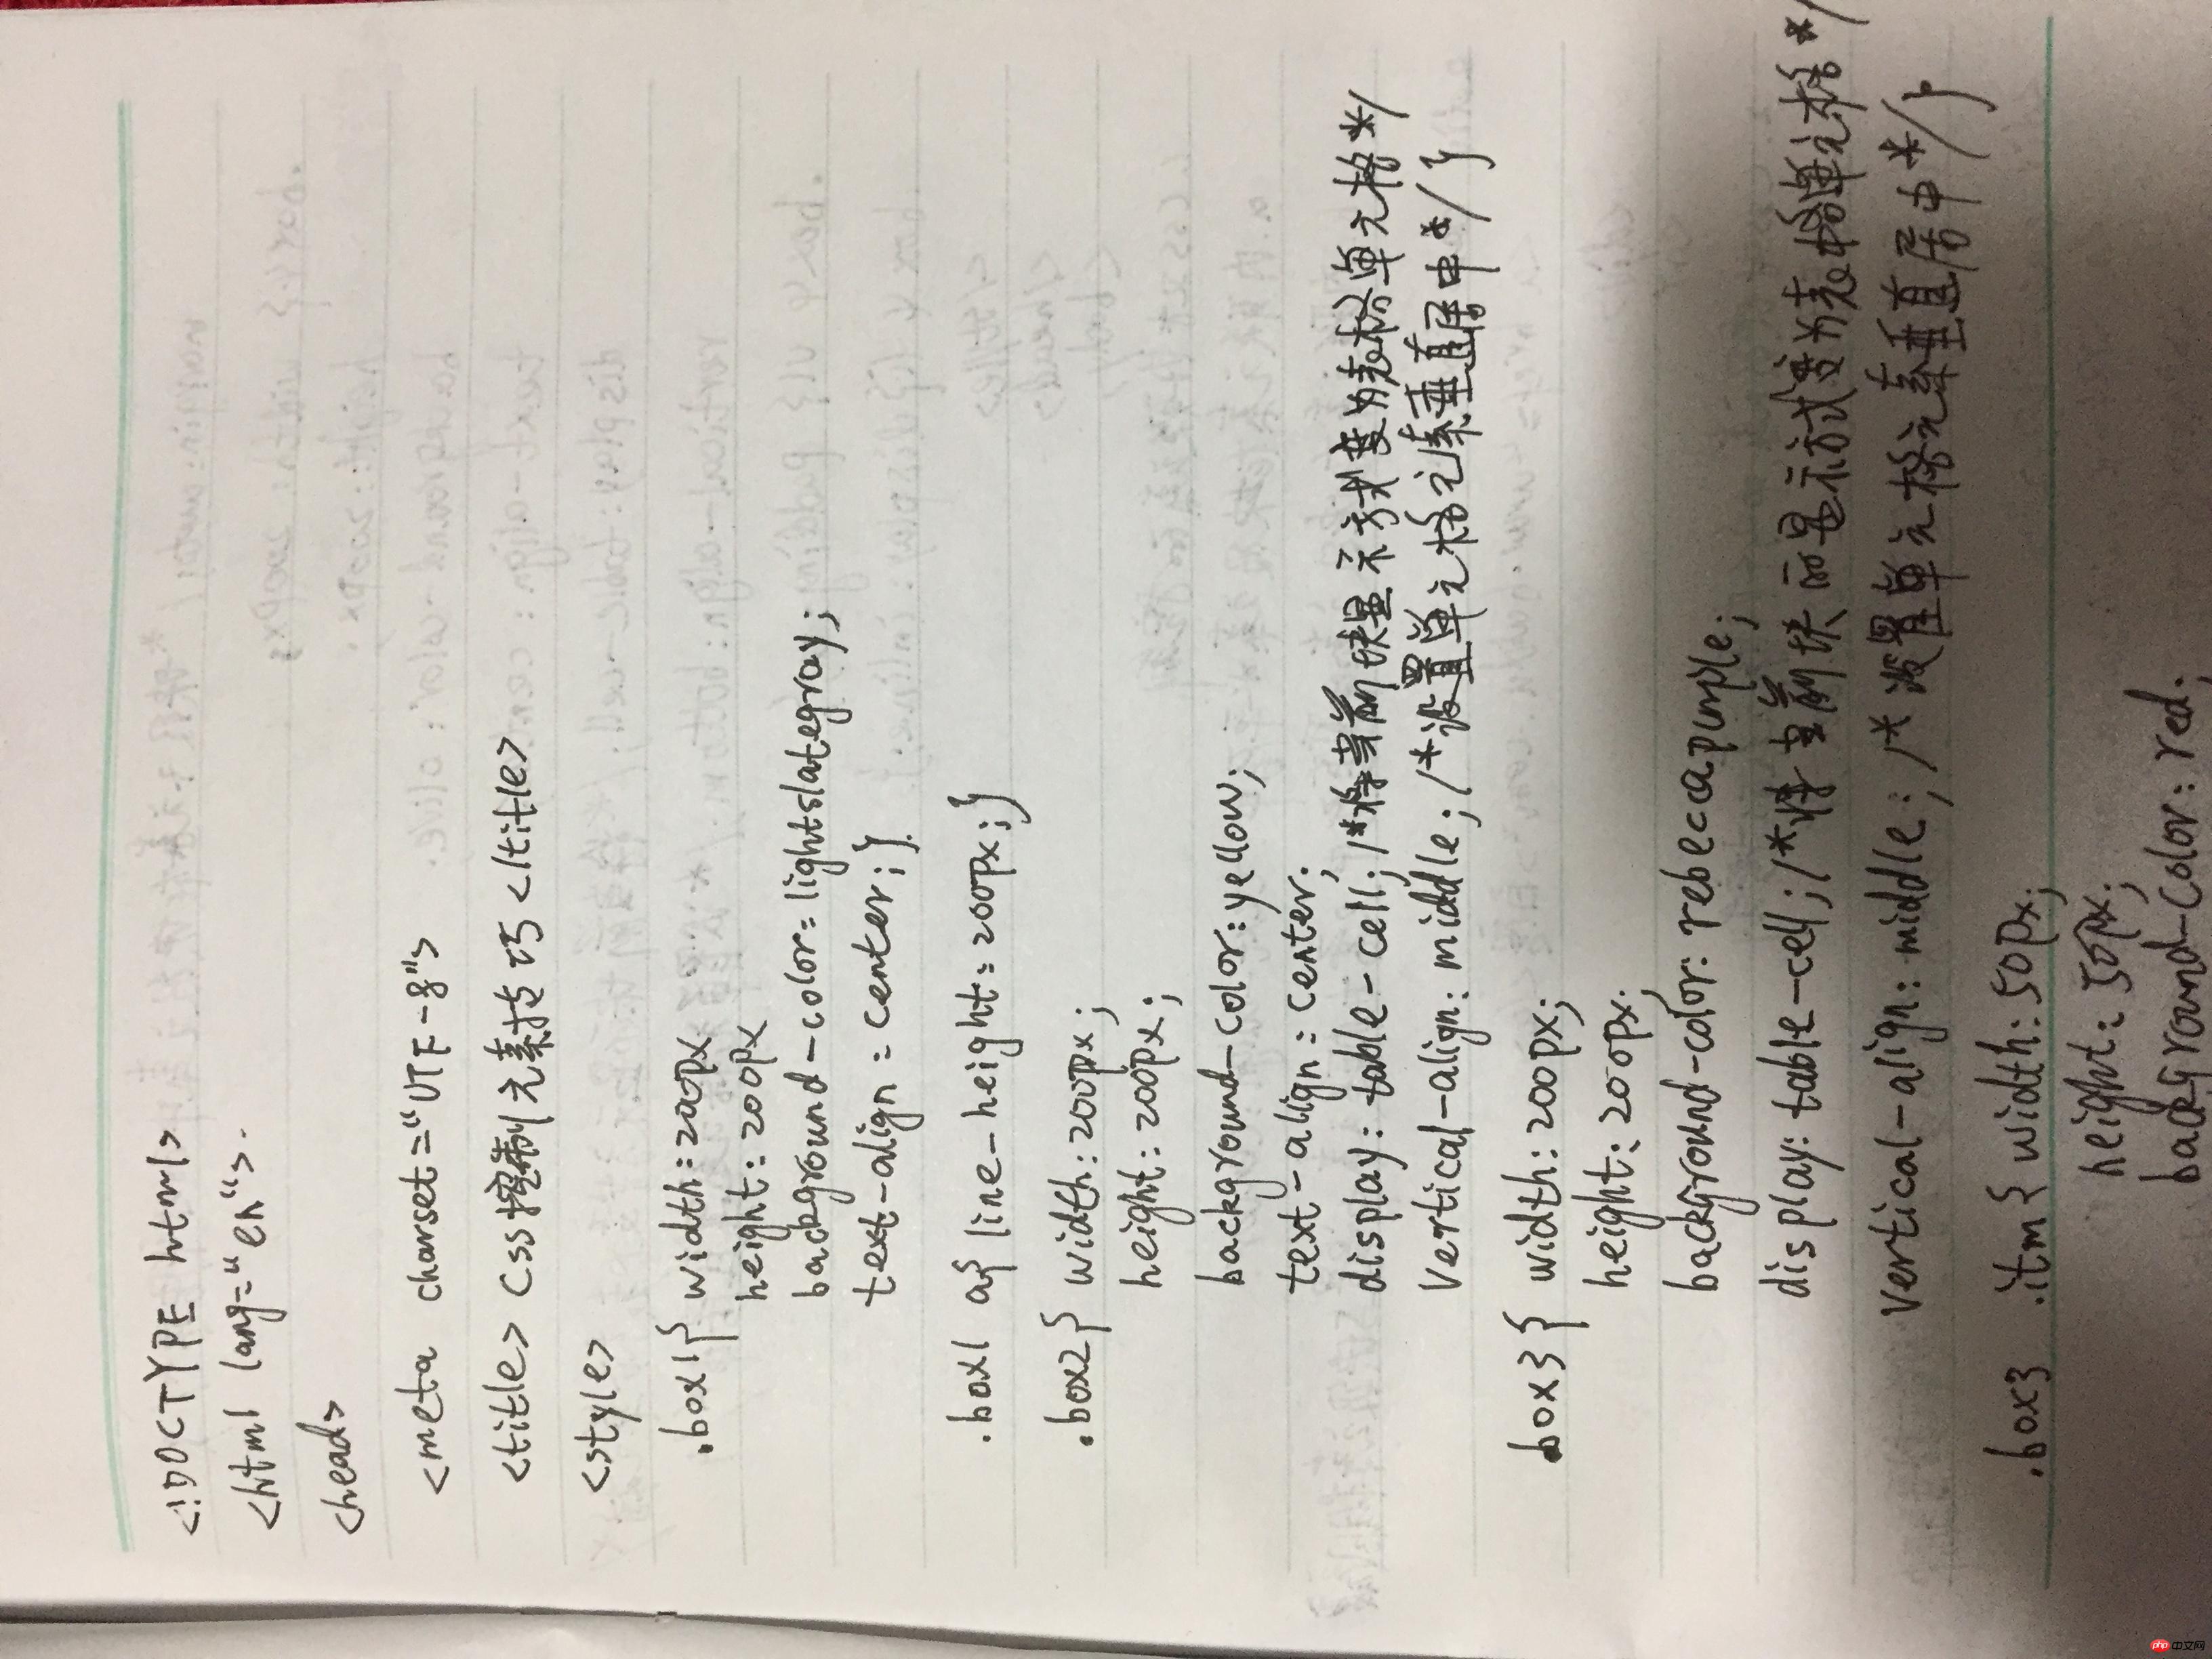 <!DOCTYPE html>
<html lang="en">
<head>
<meta charset="UTF-8">
<title> CSS控制元素技巧 </title>
<style>
.box1{ width:200px
height:200px
background-color:lightslategray;
text-align:center;}
.box1 a{ line-height:200px;}
.box2{ width:200px;
height:200px;
background-color:yellow;
text-align:center;
display:table-cell; /*将当前块显示方式变为表格单元格*/
vertical-align:middle; /*设置单元格元素垂直居中*/}
.box3{ width:200px;
height:200px;
background-color:rebeccapurple;
display:table-cell; /*将当前块的显示方式变为表格单元格*/
vertical-align:middle; /*设置单元格元素垂直居中*/}
.box3 .itm{ width:50px;
height:50px;
background-color:red;
php 中文网